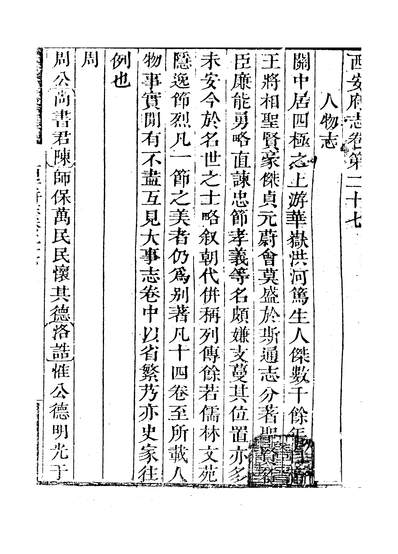 西安府志卷第二十七
人物志
關中居四極之上游華嶽洪河篤生人傑數千餘年
王將相聖賢豪傑貞元蔚會莫盛於斯通志分著聖
臣廉能勇略直諫忠節孝義等名頗嫌支蔓其位置亦多
未安今於名世之士略叙朝代併稱列傳餘若儒林文苑
隱逸節烈凡一節之美者仍爲別著凡十四卷至所載人
物事實閒有不盡互見大事志卷中以省繁乃亦史家往
例也
周
周公尚書君陳師保萬民民懷其德洛誥惟公德明光于